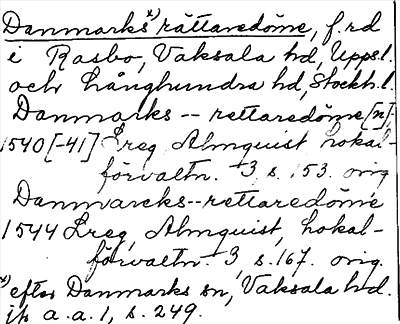 Danmarks x) rättaredöme, f.rd
i Rasbo, Vaksala hd, Uppsl.
och Långhundra hd, Stockh.l.
Danmarks -- rettaredöme[n]
1540[-41] Lreg Almquist Lokal-
förvaltn. 3 s. 153. orig
Danmarcks--rettaredöme
1544 Lreg, Almquist, Lokal-
förvaltn. 3, s. 167. orig.
x) efter Danmarks sn, Vaksala hd.
jfr a.a. 1, s. 249.